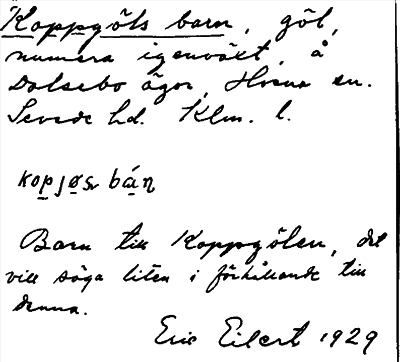 Koppgöls barn, göl,
numera igenväxt, å
Dalsebo ägor, sn.
Sevede hd. Klm. l.
kopjøs bán
Barn till Koppgölen, det
vill säga liten i förhållande till
denna.
Eric Eilert 1929